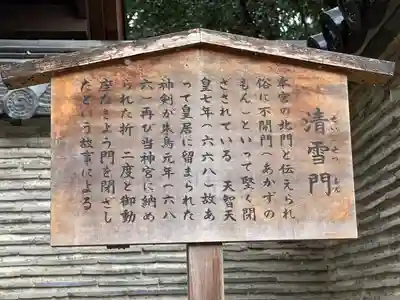 清雪門
せい せつ もん
本宮の北門と伝えられ
俗に不開門(あかずの
もん)といって堅く閉
ざされている 天智天
皇七年(六六八)故あ
って皇居に留まられた
神剣が朱鳥元年(六八
六)再び当神宮に納め
られた折 二度と御動
座なきよう門を閉ざし
たという故事による